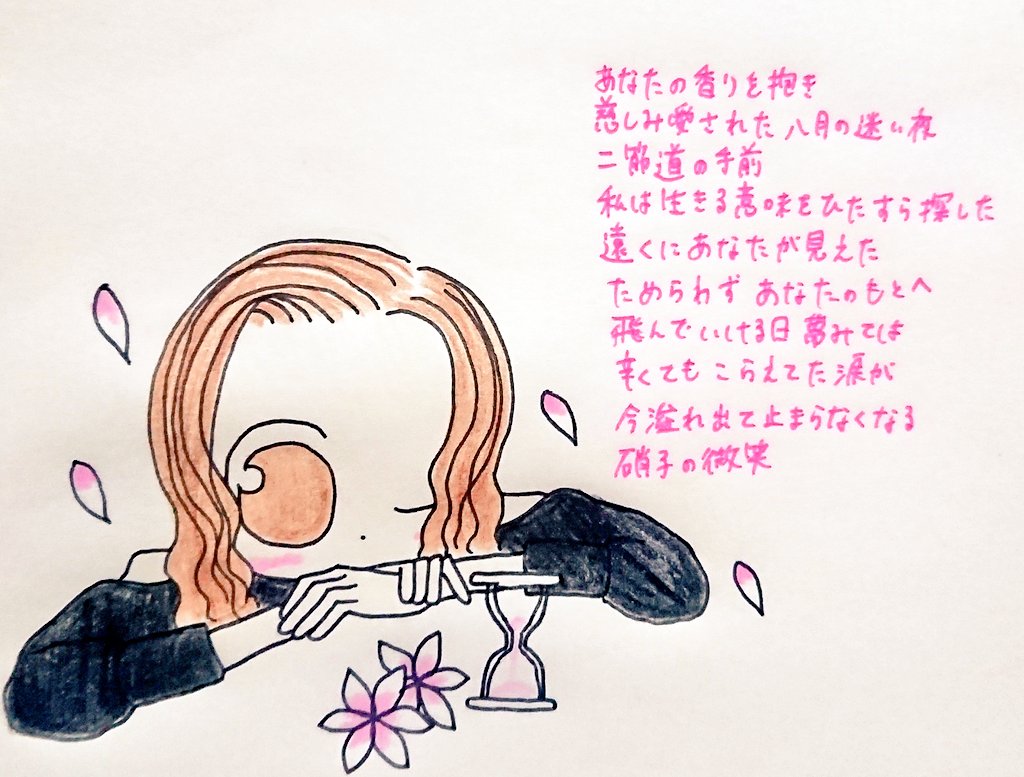 あなたの香りを抱き
慈しみ愛された 八月の迷い夜
二筋道の手前
私は生きる意味をひたすら探した
遠くにあなたが見えた
ためらわず あなたのもとへ
飛んでいける日 夢みては
辛くても こらえてた涙が
今溢れ出て止まらなくなる
硝子の微笑